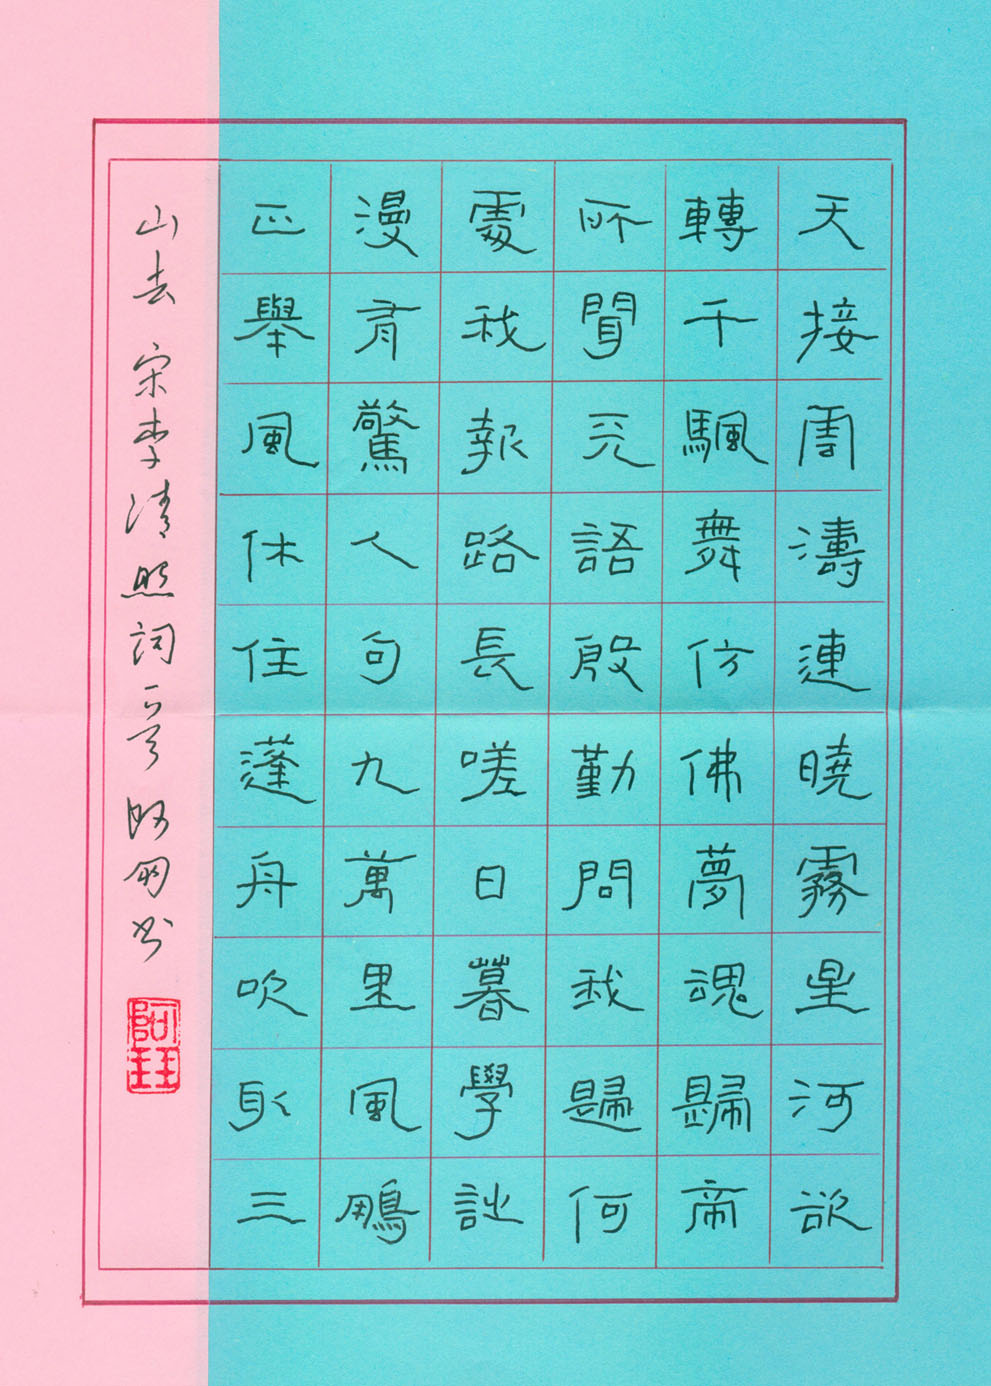 天接雲濤連曉霧星河欲
轉千颿舞仿佛夢魂歸帝
所聞天語殷勤問我歸何
處我報路長嗟日暮學詩
漫有驚人句九萬里風鵬
正舉風休住蓬舟吹取三
山去 宋李清照词一首 书
阿玨